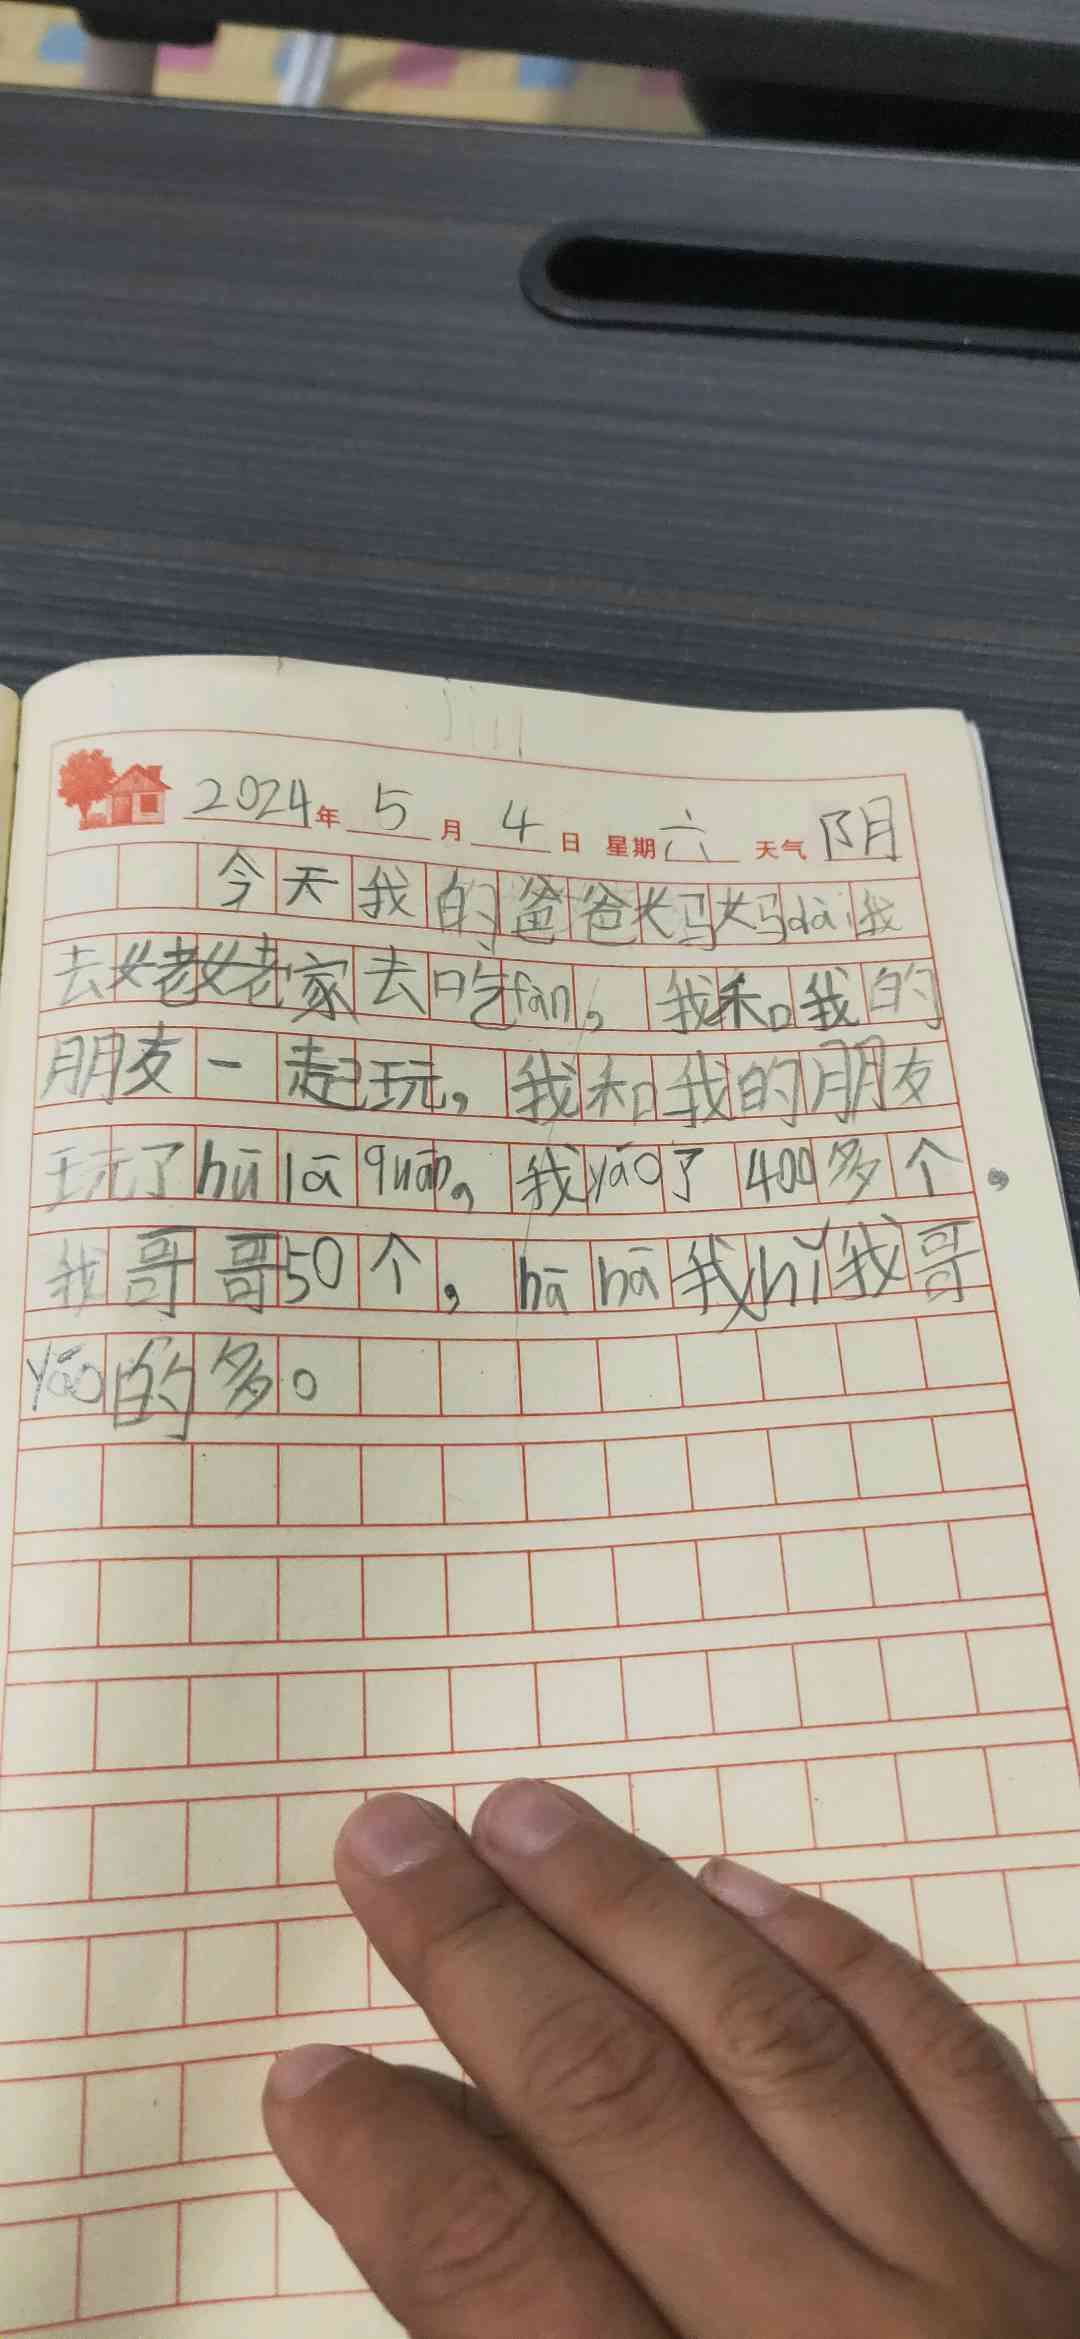 2024年5月4日 星期六 天气阴
今天我的爸爸妈妈dài我
去姥姥家去吃fàn，我和我的
朋友一起玩，我和我的朋友
玩了hū lā quān，我yāo了400多个，
我哥哥50个，hā hā我bǐ我哥
yāo的多。